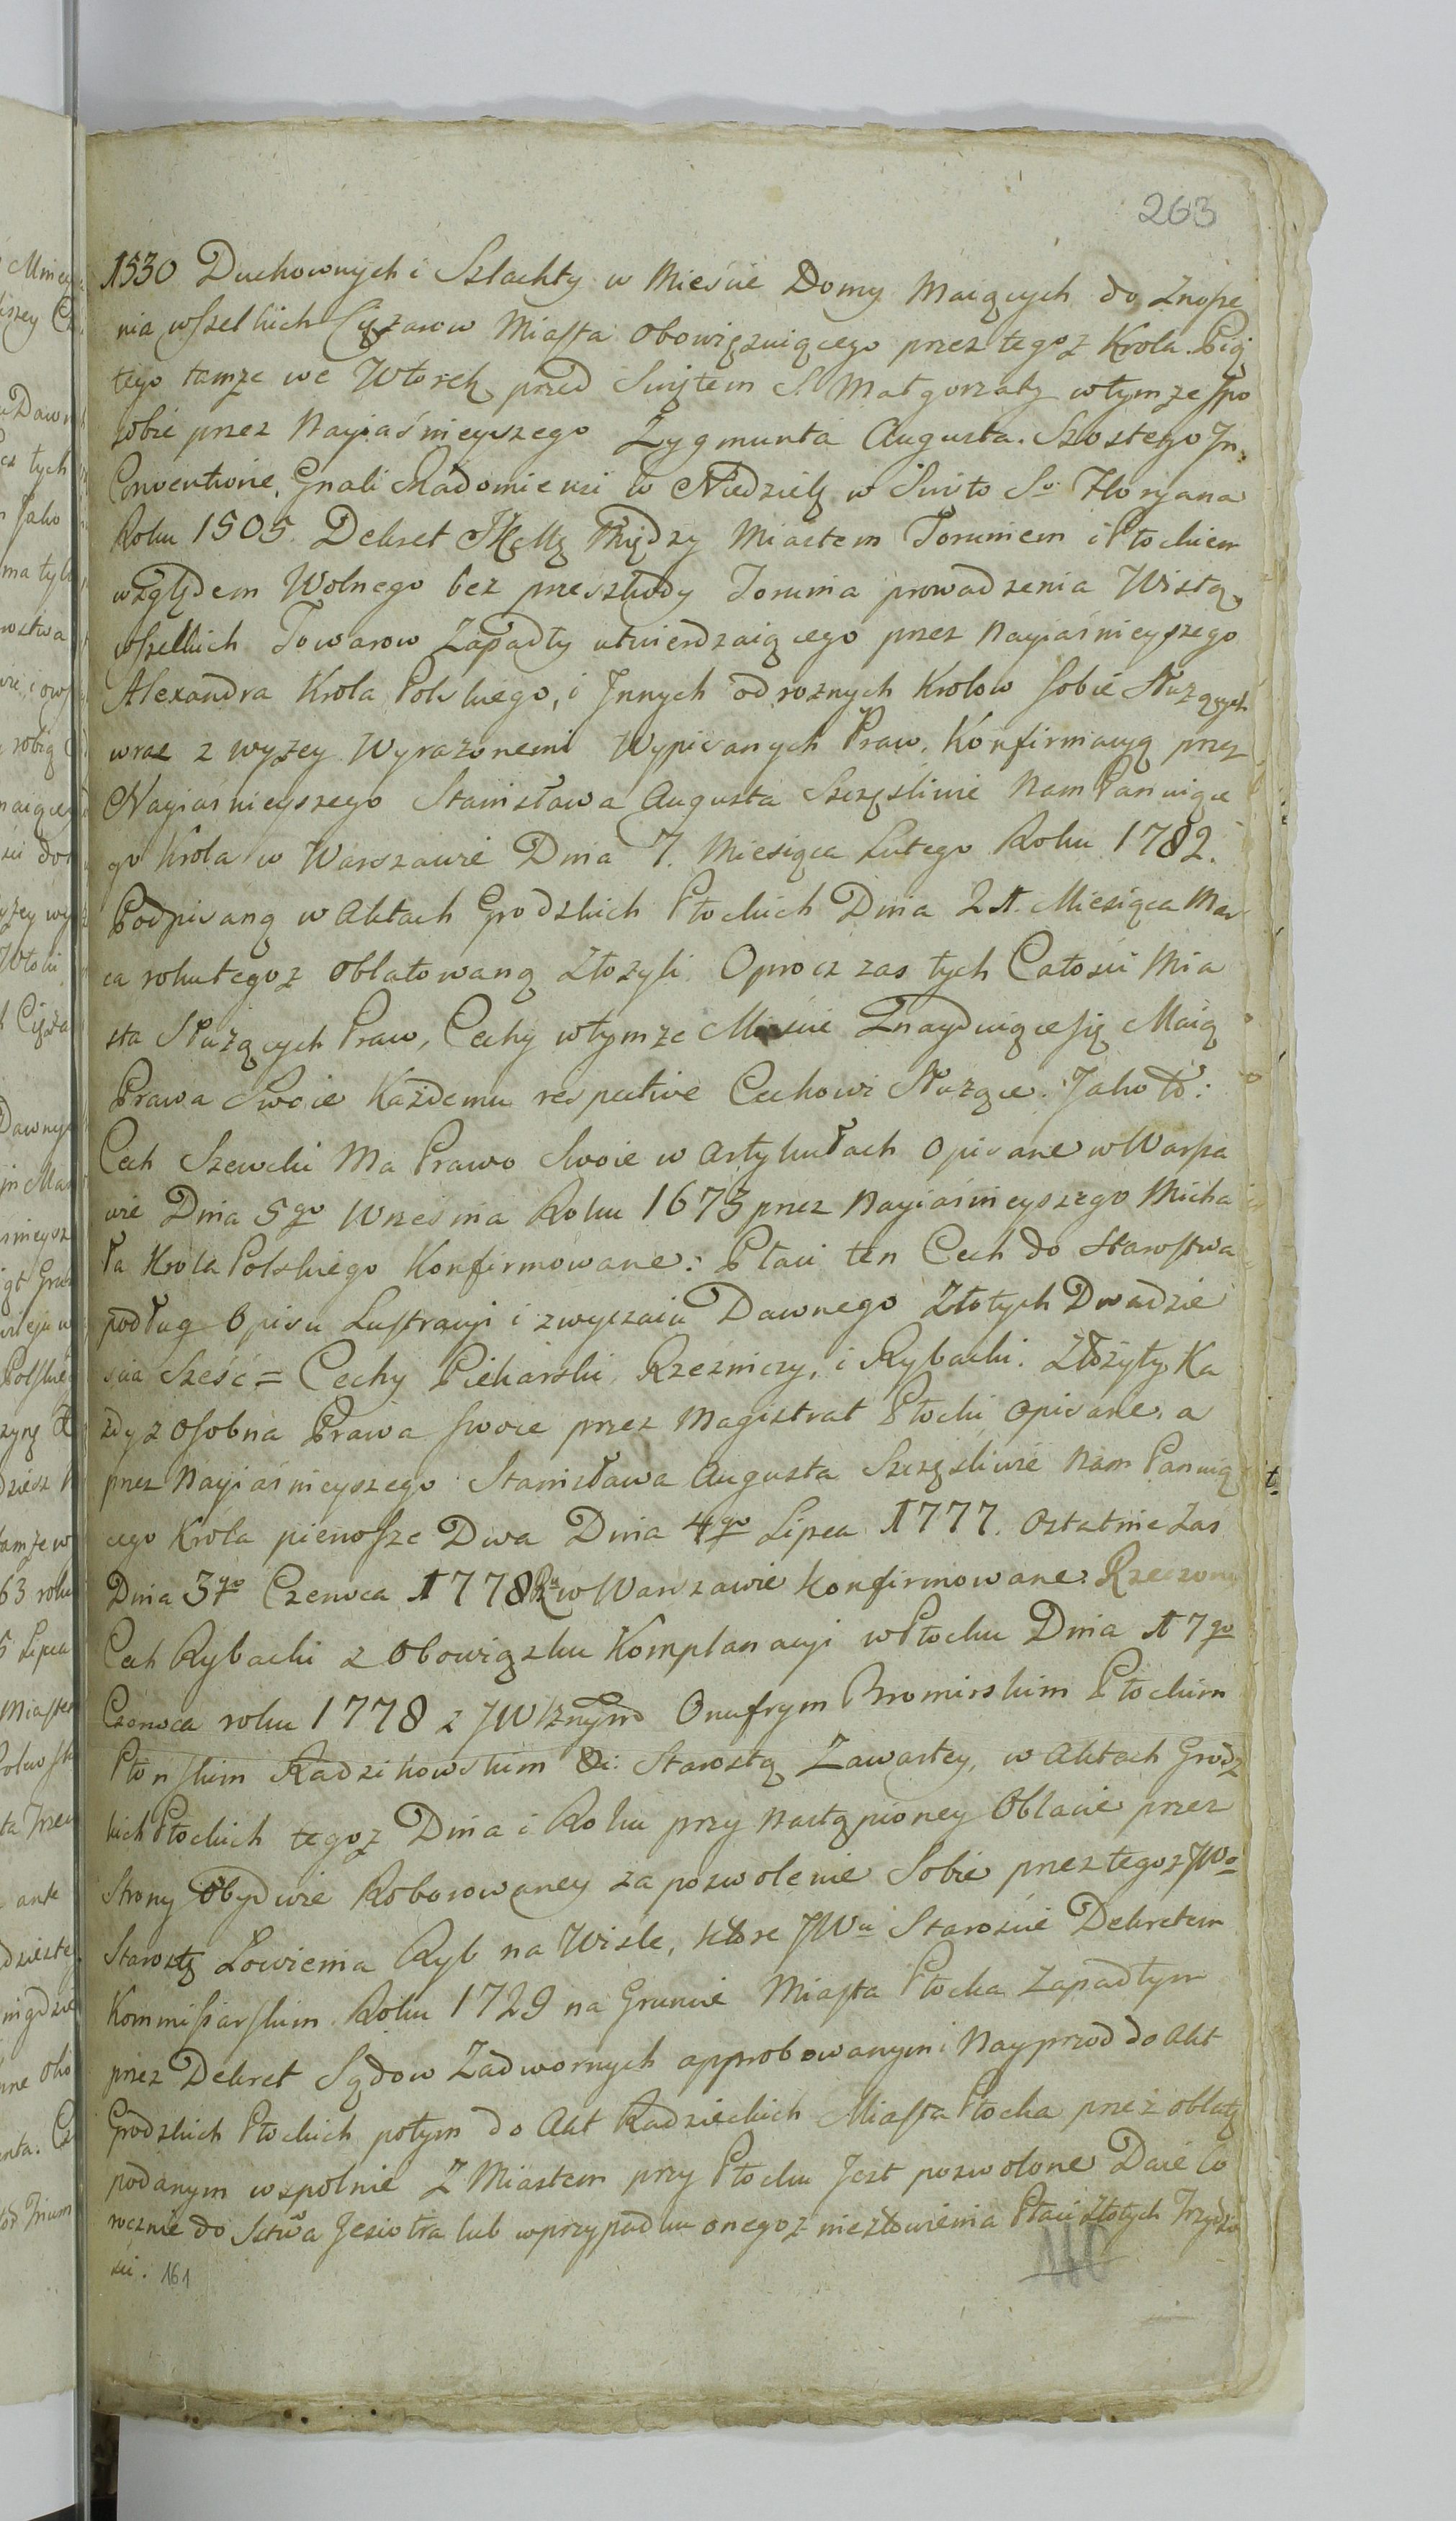 263
1530 Duchownych i Szlachty w Mieście Domy Maiących do Znosze
nia wszelkich Ciężarow Miasta obowięzuiącego przez tegoz Krola. Pią
tego tamze we Wtorek przed Swiętem S. Małgorzaty w tymze spo
sobie przez Nayiaśnieyszego Zygmunta Augusta. Szostego Jn
Conventione, Gnali Radomiensi w Niedzielę w Swięto So Floryana
Roku 1505. Dekret Między Miastem Toruniem i Płockiem
względem Wolnego bez przeszkody Torunia prowadzenia Wisłą,
wszelkich Towarow Zapadły utwierdzaiącego przez Nayiaśnieyszego
Alexandra Krola Polskiego, i Jnnych od roznych Krolow sobie Służących
wraz z wyzey Wyrażonemi Wypisanych Praw, Konfirmacyą przez
Nayiaśnieyszego Stanisława Augusta Szczęśliwie Nam Panuiące
go Krola w Warszawie Dnia 7. Miesiąca Lutego Roku 1782.
Podpisaną w Aktach Grodzkich Płockich Dnia 21. Miesiąca Mar
ca roku tegoz oblatowaną Złożyli. Oprocz zas tych Całości Mia
sta Służących Praw, Cechy w tymze Mieście Znayduiące się Maią
Prawa Swoie Każdemu respective Cechowi Służące. Jako to:
Cech Szewcki Ma Prawo Swoie w Artykułach Opisane w Warsza
wie Dnia 5go Wrzesnia Roku 1673 przez Nayiaśnieyszego Micha
ła Krola Polskiego Konfirmowane: Płaci ten Cech do Starostwa
podług Opisu Lustracyi i zwyczaiu Dawnego Złotych Dwadzie
scia Sześć = Cechy Piekarski, Rzezniczy, i Rybacki. Złożyły Ka
zdy z osobna Prawa swoie przez Magistrat Płocki opisane, a
przez Nayiaśnieyszego Stanisława Augusta Szczęśliwie Nam Panuią
cego Krola pierwsze Dwa Dnia 4go Lipca 1777. Ostatnie Zas
Dnia 3go Czerwca 1778 Ru w Warszawie Konfirmowane. Rzeczony
Cech Rybacki z Obowiązku Komplanacyi w Płocku Dnia 17go
Czerwca roku 1778 z JW Onufrym Bromirskim Płockim
Płonskim Radzikowskim &c: Starostą Zawartey, w Aktach Grodz
kich Płockich tegoz Dnia i Roku przy Nastąpioney Oblacie przez
Strony Obydwie Roborowaney za pozwolenie Sobie przez tegoz JWo
Starostę Łowienia Ryb na Wisle, ktore JWu Staroscie Dekretem
Kommissarskim Roku 1729 na Gruncie Miasta Płocka Zapadłym
przez Dekret Sądow Zadwornych approbowanym i Nayprzod do Akt
Grodzkich Płockich potym do Akt Radzieckich Miasta Płocka przez oblatę
podanym wspolnie Z Miastem przy Płocku Jest pozwolone Daie Co
rocznie do Sctwa Jesiotra lub w przypadku onegoz niezłowienia Płaci Złotych Trzydzie
sci. 161